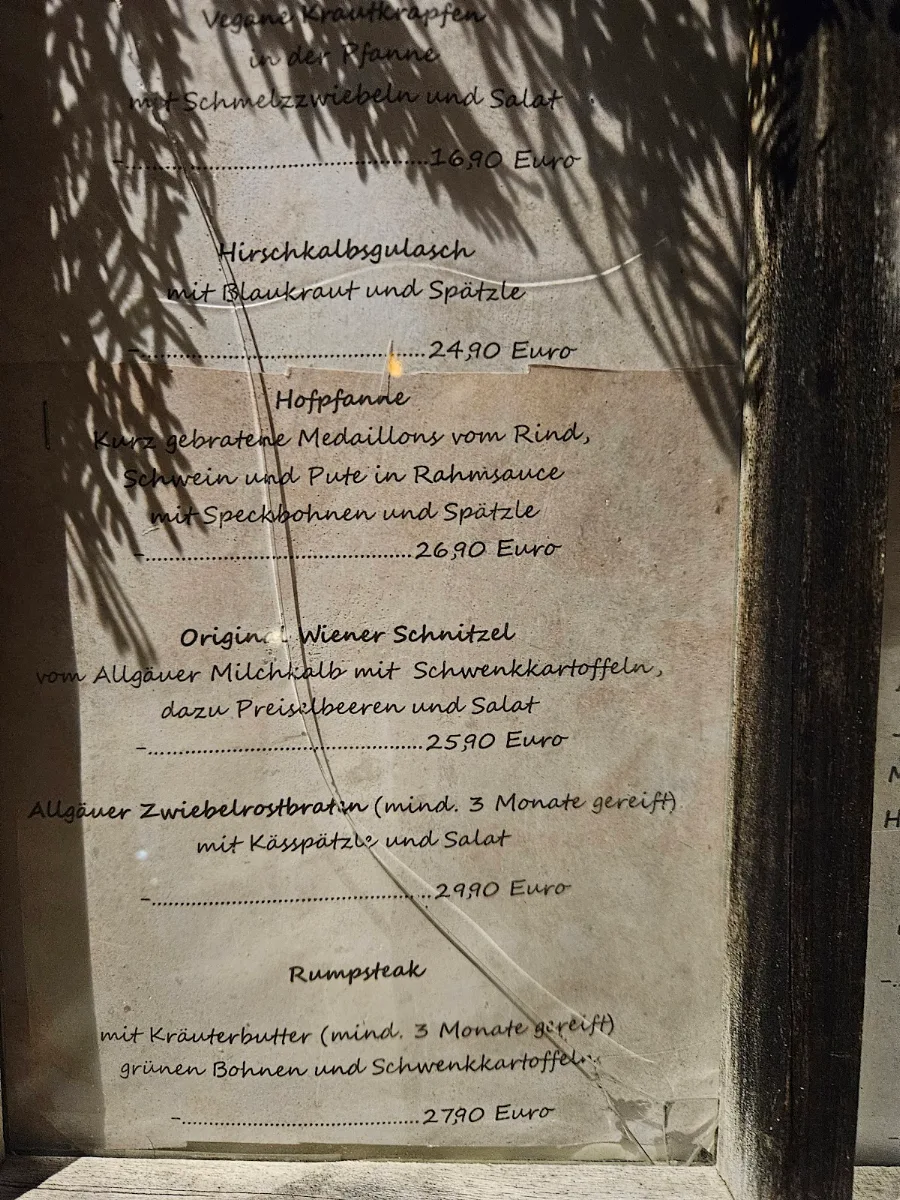 Vegane Krautkrapfen
in der Pfanne
mit Schmelzzwiebeln und Salat
-..............................16,90 Euro
Hirschkalbsgulasch
mit Blaukraut und Spätzle
-..............................24,90 Euro
Hofpfanne
Kurz gebratene Medaillons vom Rind,
Schwein und Pute in Rahmsauce
mit Speckbohnen und Spätzle
-..............................26,90 Euro
Original Wiener Schnitzel
vom Allgäuer Milchkalb mit Schwenkkartoffeln,
dazu Preiselbeeren und Salat
-..............................25,90 Euro
Allgäuer Zwiebelrostbraten (mind. 3 Monate gereift)
mit Kässpätzle und Salat
-..............................29,90 Euro
Rumpsteak
mit Kräuterbutter (mind. 3 Monate gereift)
grünen Bohnen und Schwenkkartoffeln
-..............................27,90 Euro